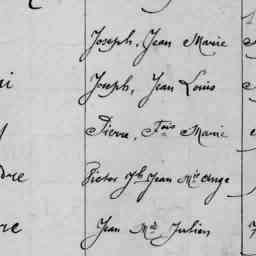 Joseph, Jean Marie
Joseph, Jean Louis
Pierre, Fois Marie
dre Victor Jh Jean Mie Ange
re Jean Mie Julien